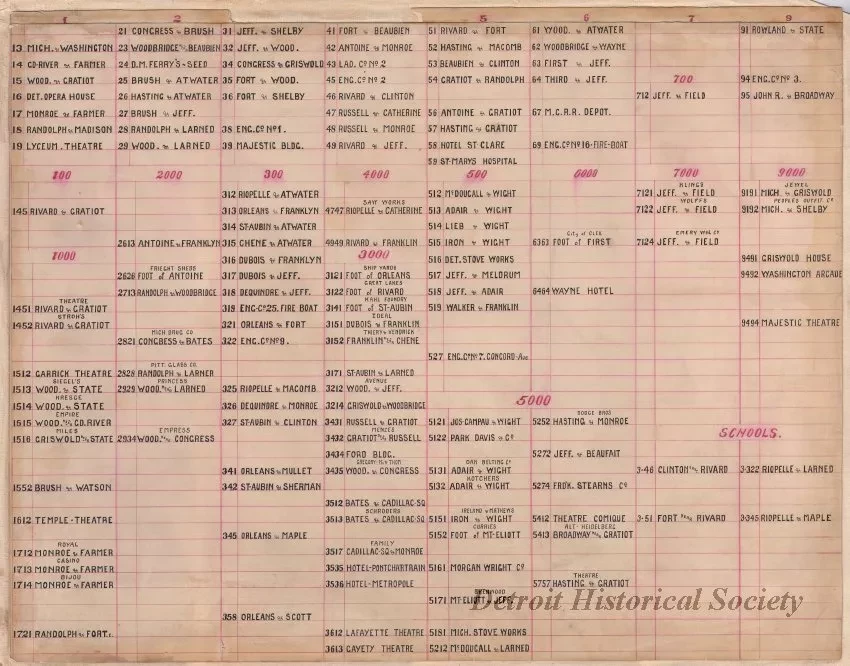 1
2
5
6
7
9
21 CONGRESS & BRUSH
31 JEFF. & SHELBY
41 FORT & BEAUBIEN
51 RIVARD & FORT
61 WOOD. & ATWATER
91 ROWLAND & STATE
13 MICH. & WASHINGTON
23 WOODBRIDGE & BEAUBIEN
32 JEFF. & WOOD.
42 ANTOINE & MONROE
52 HASTING & MACOMB
62 WOODBRIDGE & WAYNE
14 GD-RIVER & FARMER
24 D.M. FERRY'S-SEED
34 CONGRESS & GRISWOLD
43 LAD. CO No 2
53 BEAUBIEN & CLINTON
63 FIRST & JEFF.
700
15 WOOD. & GRATIOT
25 BRUSH & ATWATER
35 FORT & WOOD.
45 ENG. CO No 2
54 GRATIOT & RANDOLPH
64 THIRD & JEFF.
94 ENG. CO No 3.
16 DET. OPERA HOUSE
26 HASTING & ATWATER
36 FORT & SHELBY
46 RIVARD & CLINTON
712 JEFF. & FIELD
95 JOHN R. & BROADWAY
17 MONROE & FARMER
27 BRUSH & JEFF.
47 RUSSELL & CATHERINE
56 ANTOINE & GRATIOT
67 M.C.R.R. DEPOT.
18 RANDOLPH & MADISON
28 RANDOLPH & LARNED
38 ENG. CO No 1.
48 RUSSELL & MONROE
57 HASTING & GRATIOT
19 LYCEUM. THEATRE
29 WOOD. & LARNED
39 MAJESTIC BLDG.
49 RIVARD & JEFF.
58 HOTEL ST CLARE
69 ENG. CO No 16-FIRE-BOAT
59 ST-MARYS HOSPITAL
100
2000
300
4000
500
6000
7000
9000
312 RIOPELLE & ATWATER
512 McDOUGALL & WIGHT
KLINGS
7121 JEFF. & FIELD
JEWEL
9191 MICH. & GRISWOLD
145 RIVARD & GRATIOT
313 ORLEANS & FRANKLYN
SAW WORKS
4747 RIOPELLE & CATHERINE
513 ADAIR & WIGHT
WOLFFS
7122 JEFF. & FIELD
PEOPLES OUTFIT CO
9192 MICH. & SHELBY
314 ST-AUBIN & ATWATER
514 LIEB & WIGHT
2613 ANTOINE & FRANKLYN
315 CHENE & ATWATER
4949 RIVARD & FRANKLIN
515 IRON & WIGHT
City of Cleve
6363 FOOT of FIRST
EMERY MNL CO
7124 JEFF. & FIELD
1000
316 DUBOIS & FRANKLYN
3000
516 DET. STOVE WORKS
9491 GRISWOLD HOUSE
FRIEGHT SHEDS
2626 FOOT of ANTOINE
317 DUBOIS & JEFF.
SHIP YARDS
3121 FOOT of ORLEANS
517 JEFF. & MELDRUM
9492 WASHINGTON ARCADE
2713 RANDOLPH & WOODBRIDGE
318 DEQUINDRE & JEFF.
GREAT LAKES
3122 FOOT of RIVARD
518 JEFF. & ADAIR
6464 WAYNE HOTEL
THEATRE
1451 RIVARD & GRATIOT
319 ENG-CO 25. FIRE BOAT
KAHL FOUNDRY
3141 FOOT of ST-AUBIN
519 WALKER & FRANKLIN
STROH'S
1452 RIVARD & GRATIOT
321 ORLEANS & FORT
IDEAL
3151 DUBOIS & FRANKLIN
9494 MAJESTIC THEATRE
MICH DRUG CO
2821 CONGRESS & BATES
322 ENG. CO No 9.
3152 FRANKLIN & CHENE
527 ENG. CO No 7. CONCORD-Ave
1512 GARRICK THEATRE
PITT. GLASS CO.
2828 RANDOLPH & LARNED
3171 ST-AUBIN & LARNED
SIEGEL'S
1513 WOOD. & STATE
PRINCESS
2929 WOOD. & LARNED
325 RIOPELLE & MACOMB
AVENUE
3212 WOOD. & JEFF.
5000
KRESGE
1514 WOOD. & STATE
326 DEQUINDRE & MONROE
3214 GRISWOLD & WOODBRIDGE
EMPIRE
1515 WOOD. & GD. RIVER
327 ST-AUBIN & CLINTON
3431 RUSSELL & GRATIOT
5121 JOS-CAMPAU & WIGHT
DODGE BROS
5252 HASTING & MONROE
SCHOOLS.
MILES
1516 GRISWOLD & STATE
EMPRESS
2934 WOOD. & CONGRESS
MENZES
3432 GRATIOT & RUSSELL
5122 PARK DAVIS & CO
3434 FORD BLDG.
5272 JEFF. & BEAUFAIT
341 ORLEANS & MULLET
3435 WOOD. & CONGRESS
DAN BELTING CO
5131 ADAIR & WIGHT
3-46 CLINTON & RIVARD
3-322 RIOPELLE & LARNED
1552 BRUSH & WATSON
342 ST-AUBIN & SHERMAN
KOTCHERS
5132 ADAIR & WIGHT
5274 FRDK. STEARNS CO
3512 BATES & CADILLAC-SQ
1612 TEMPLE-THEATRE
SCHRODERS
3513 BATES & CADILLAC-SQ
IRELAND & MATHEWS
5151 IRON & WIGHT
5412 THEATRE COMIQUE
3-51 FORT & RIVARD
3-345 RIOPELLE & MAPLE
345 ORLEANS & MAPLE
CURRIES
5152 FOOT of MT-ELIOTT
ALT-HEIDELBERG
5413 BROADWAY & GRATIOT
ROYAL
1712 MONROE & FARMER
FAMILY
3517 CADILLAC-SQ & MONROE
CASINO
1713 MONROE & FARMER
3535 HOTEL-PONTCHARTRAIN
5161 MORGAN WRIGHT CO
BIJOU
1714 MONROE & FARMER
3536 HOTEL-METROPOLE
THEATRE
5757 HASTING & GRATIOT
5171 MT-ELIOTT & JEFF.
Detroit Historical Society
358 ORLEANS & SCOTT
1721 RANDOLPH & FORT.
3612 LAFAYETTE THEATRE
5181 MICH. STOVE WORKS
3613 GAYETY THEATRE
5212 McDOUGALL & LARNED